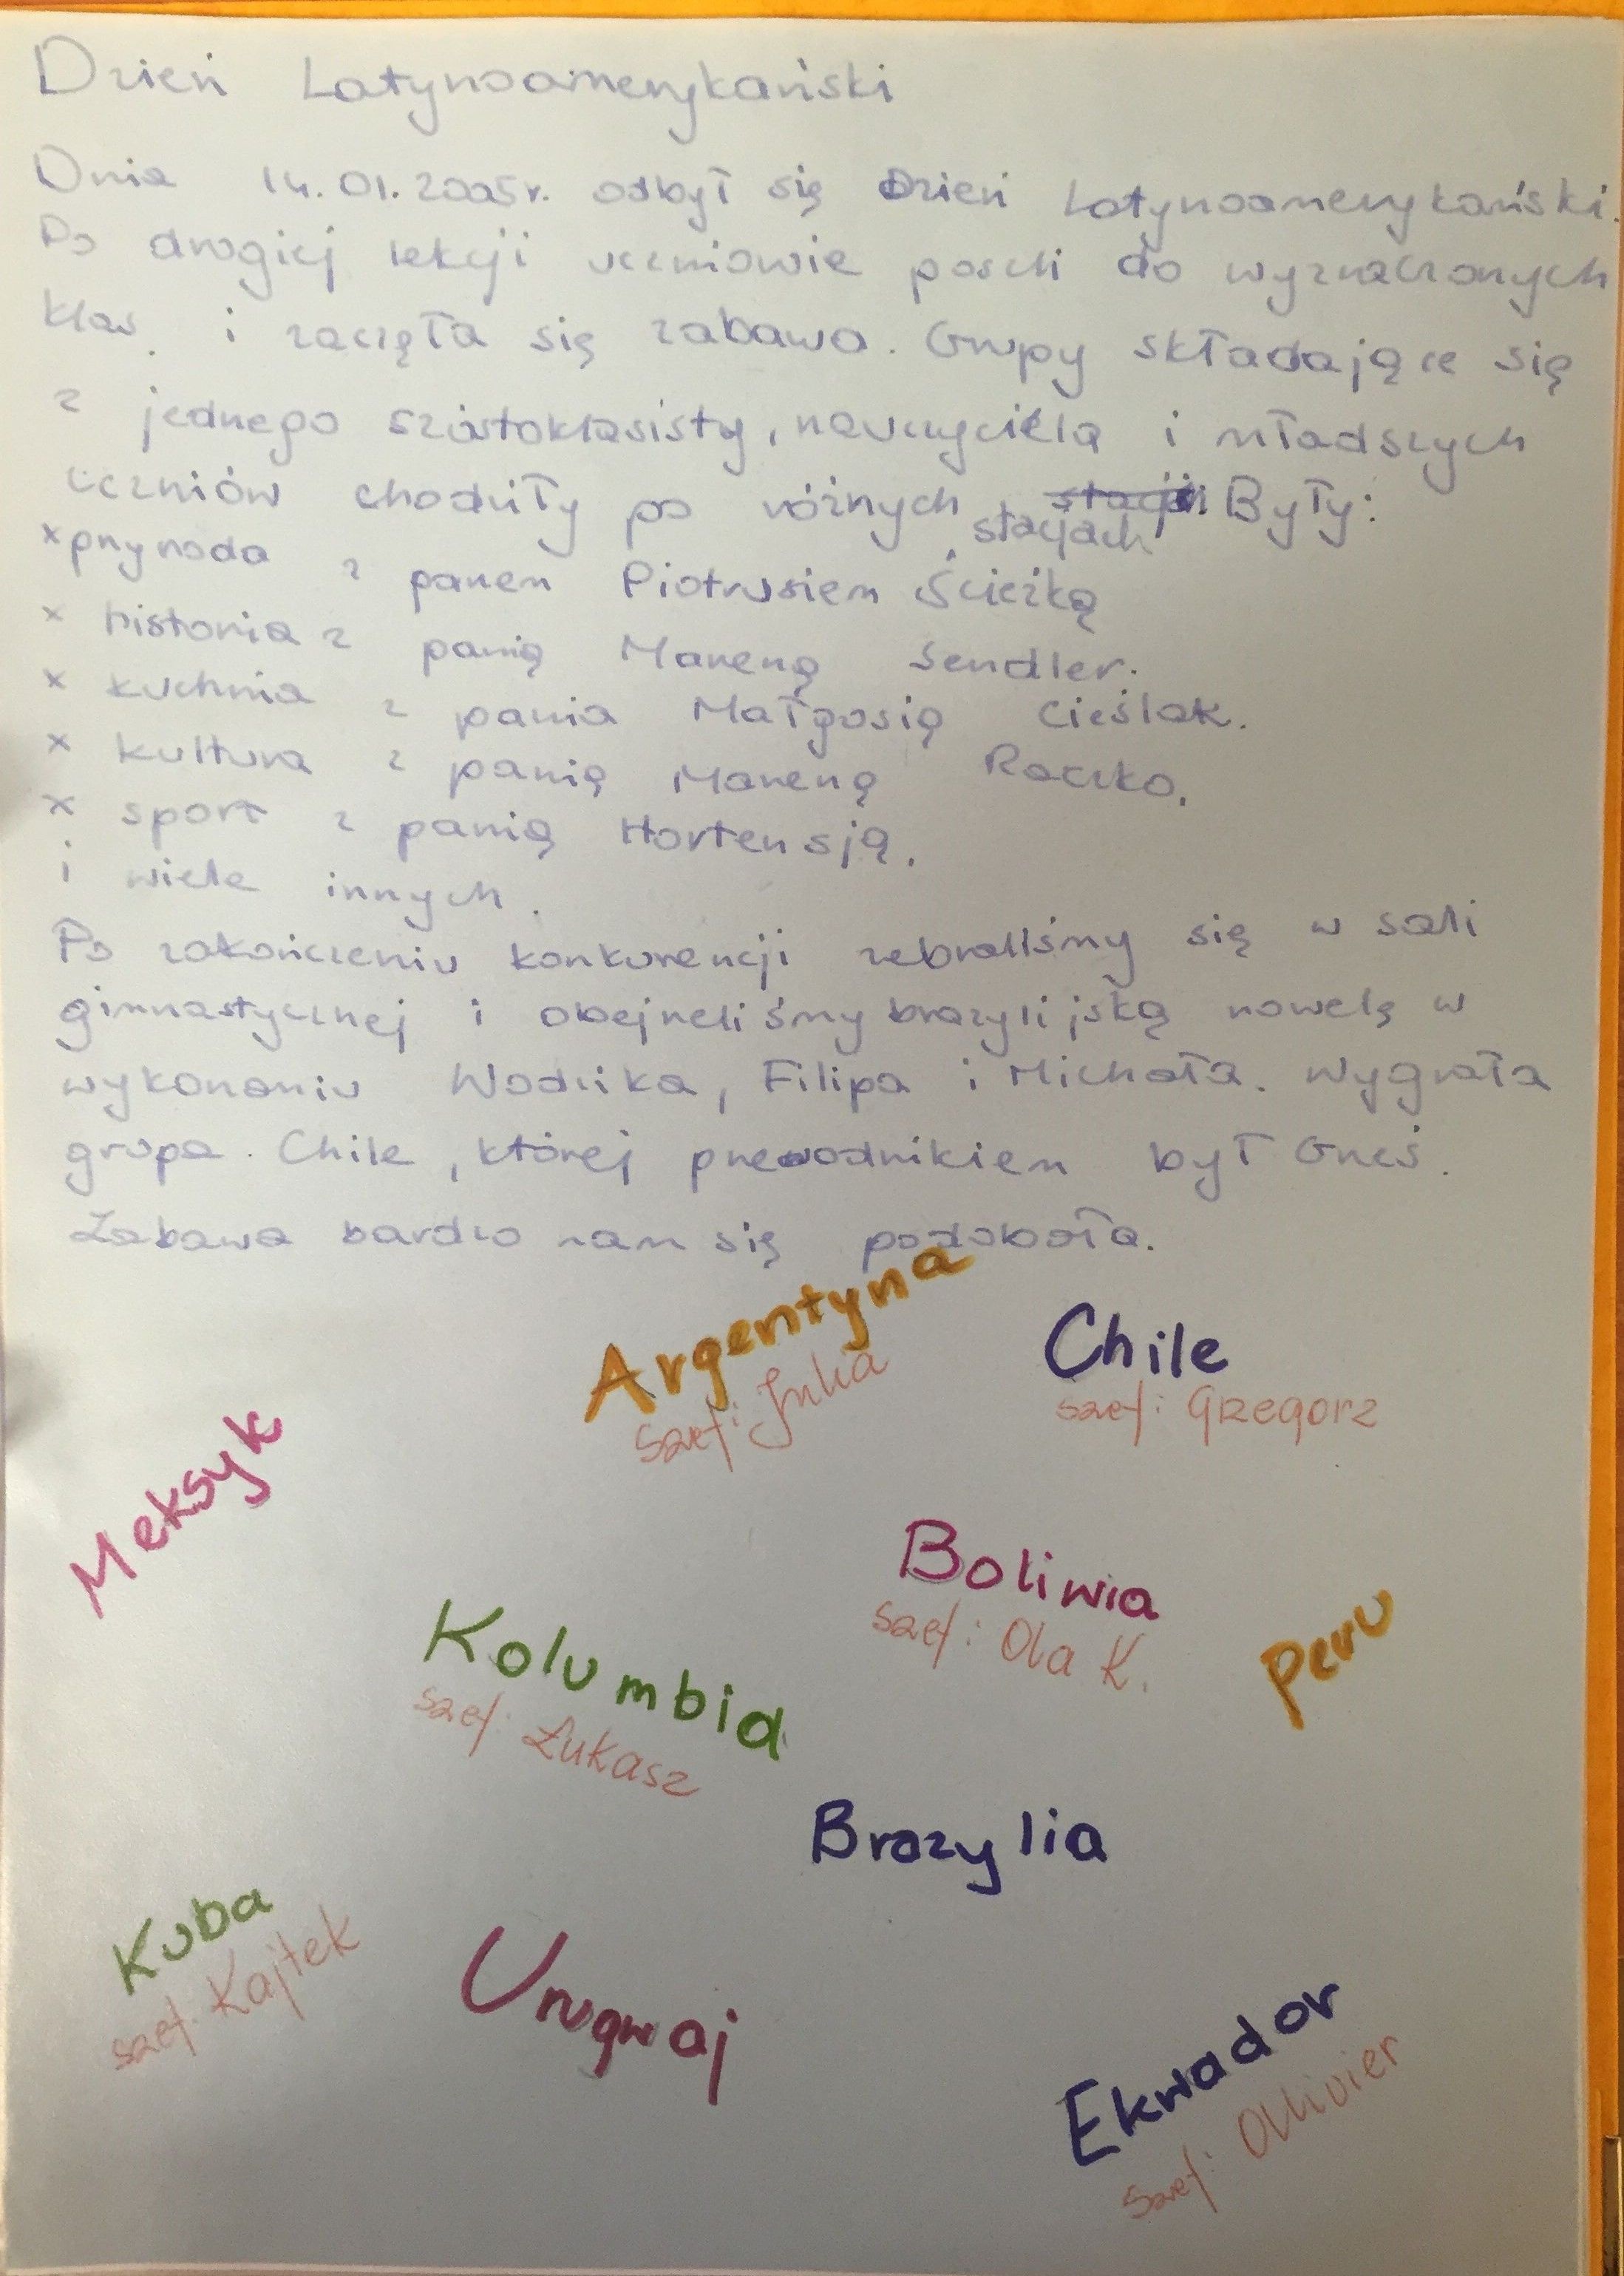 Dzień Latynoamerykański
Dnia 14.01.2005r. odbył się Dzień Latynoamerykański.
Po drogiej lekcji uczniowie poszli do wyznaczonych
klas. i zaczęła się zabawa. Grupy składające się
z jednego szóstoklasisty, nauczyciela i młodszych
uczniów chodziły po różnych stacji stacjach. Były:
x przyroda z panem Piotrusiem Ścieżką
x historia z panią Marzeną Sendler.
x kuchnia z pania Małgosią Cieślak.
x kultura z panią Marzeną Raczko.
x sport z panią Hortensją.
i wiele innych.
Po zakończeniu konkurencji zebraliśmy się w sali
gimnastycznej i obejrzeliśmy brazylijską nowelę w
wykonaniu Wodzika, Filipa i Michała. Wygrała
grupa Chile, której przewodnikiem był Grześ.
Zabawa bardzo nam się podobała.
Argentyna
szef: Julia
Chile
szef: Grzegorz
Meksyk
Boliwia
szef: Ola K.
Peru
Kolumbia
szef: Łukasz
Brazylia
Kuba
szef: Kajtek
Urugwaj
Ekwador
szef: Ollivier